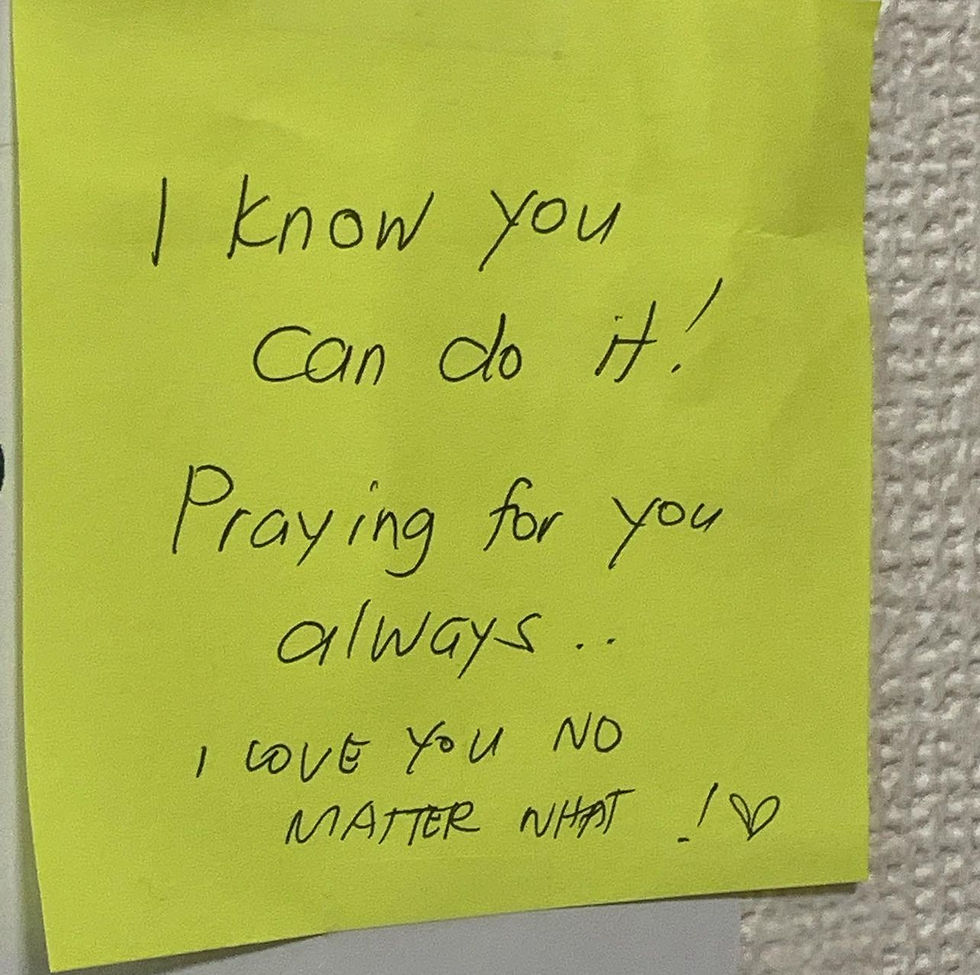 I know you
can do it!
Praying for you
always..
I LOVE YOU NO
MATTER WHAT !♡